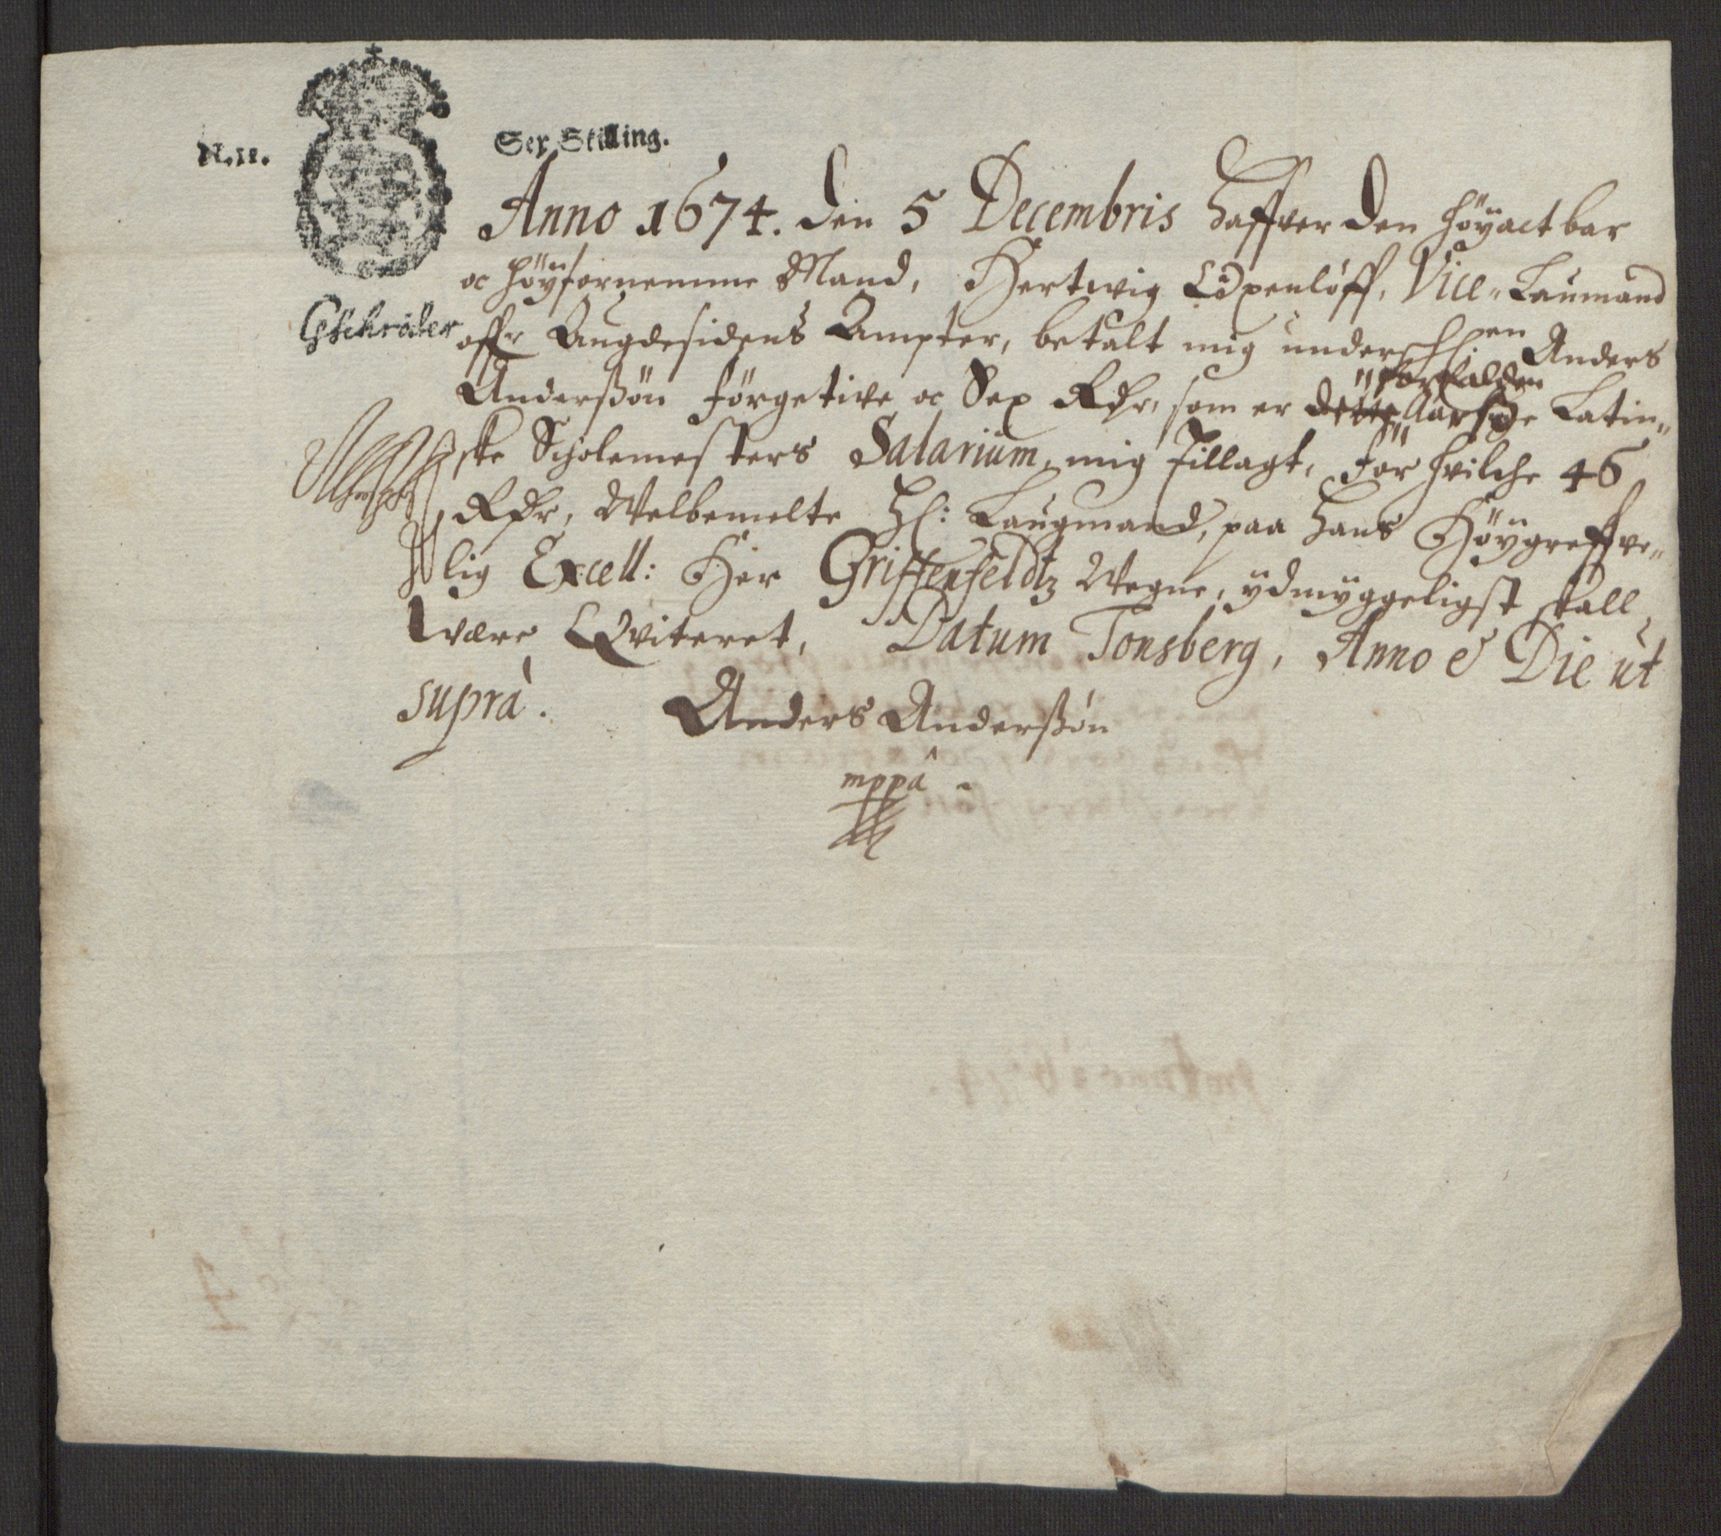 N. 11.
Sex Skilling.
Anno 1674. den 5 Decembris haffver den höyactbar
oc höyfornemme Mand, Hertwig Oxenlöff, Vice-Laumand
GSchröder
offr Augdesidens Ampter, betalt mig undersch: en Anders
Anderssön förgetive oc Sex Rdr, som er dette Aars Latin-
forfalden
ske Scholemesters Salarium, mig tillagt, för hvilche 46
Rdr, Welbemelte Hl: Laugmand, paa Hans Höygreffve-
lig Excell: Her Griffenfeldtz Wegne, ydmyggeligst skall
være Qviteret, Datum Tonsberg, Anno & Die ut
suprà.
Anders Anderssön
mppâ